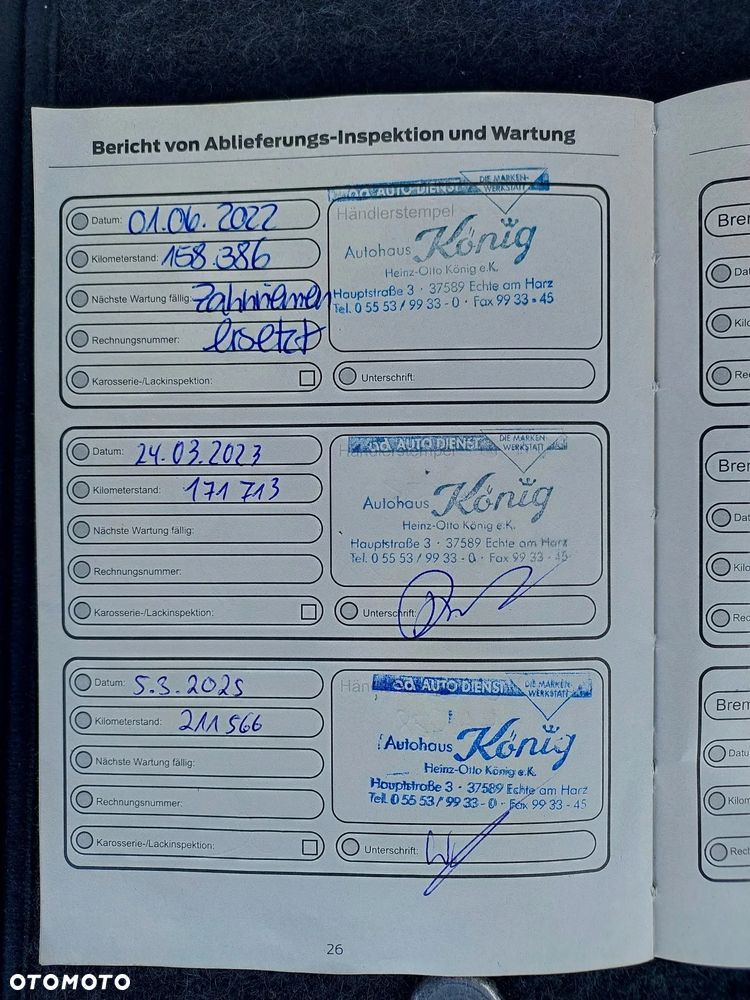 Bericht von Ablieferungs-Inspektion und Wartung
Datum: 01.06.2022
Kilometerstand: 158.386
Nächste Wartung fällig: Zahnriemen
Rechnungsnummer: ersetzt
Karosserie-/Lackinspektion:
ad AUTO DIENST DIE MARKEN-
WERKSTATT
Händlerstempel
Autohaus König
Heinz-Otto König e.K.
Hauptstraße 3 · 37589 Echte am Harz
Tel. 0 55 53 / 99 33 - 0 · Fax 99 33 - 45
Unterschrift:
Datum: 24.03.2023
Kilometerstand: 171 713
Nächste Wartung fällig:
Rechnungsnummer:
Karosserie-/Lackinspektion:
ad AUTO DIENST DIE MARKEN-
WERKSTATT
Händlerstempel
Autohaus König
Heinz-Otto König e.K.
Hauptstraße 3 · 37589 Echte am Harz
Tel. 0 55 53 / 99 33 - 0 · Fax 99 33 - 45
Unterschrift:
Datum: 5.3.2025
Kilometerstand: 211 566
Nächste Wartung fällig:
Rechnungsnummer:
Karosserie-/Lackinspektion:
ad AUTO DIENST DIE MARKEN-
WERKSTATT
Hän
Autohaus König
Heinz-Otto König e.K.
Hauptstraße 3 · 37589 Echte am Harz
Tel. 0 55 53 / 99 33 - 0 · Fax 99 33 - 45
Unterschrift:
26
Brem
Dat
Kil
Re
Brer
Dat
Kilo
Rec
Brem
Datu
Kilom
Rech
OTOMOTO